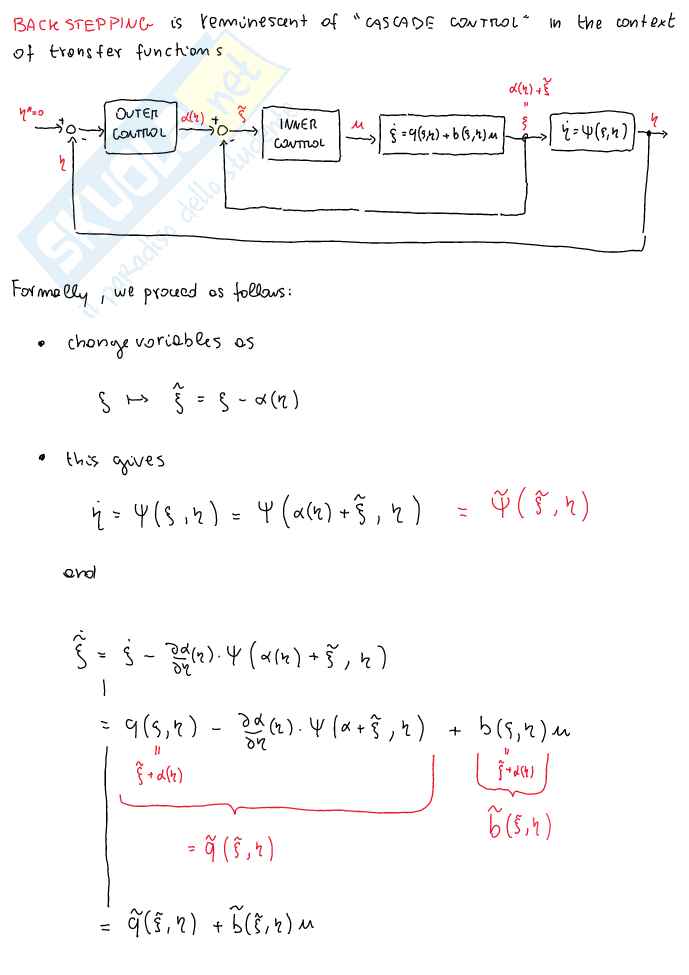 BACKSTEPPING is reminescent of "CASCADE CONTROL" in the context
of transfer functions
α(η)+ξ̃
"
η*=0 + - OUTER CONTROL α(η) + - ξ̃ INNER CONTROL u ξ̇ = q(ξ,η) + b(ξ,η) u ξ η̇ = Ψ(ξ,η) η
η
SKUOLA.net
il paradiso dello studente
Formally, we proceed as follows:
• change variables as
ξ ↦ ξ̃ = ξ - α(η)
• this gives
η̇ = Ψ(ξ,η) = Ψ(α(η)+ξ̃, η) = Ψ̃(ξ̃,η)
and
ξ̃̇ = ξ̇ - ∂α/∂η(η)·Ψ(α(η)+ξ̃, η)
= q(ξ,η) - ∂α/∂η(η)·Ψ(α+ξ̃, η) + b(ξ,η) u
" "
ξ̃+α(η) ξ̃+α(η)
= q̃(ξ̃,η) b̃(ξ̃,η)
= q̃(ξ̃,η) + b̃(ξ̃,η) u